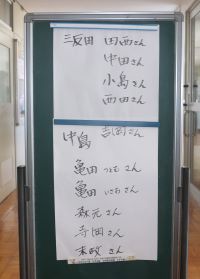 三反田 田西さん
中田さん
小島さん
西田さん
中島 吉岡さん
亀田 つとむ さん
亀田 いさお さん
森元さん
寺田さん
末政 さん